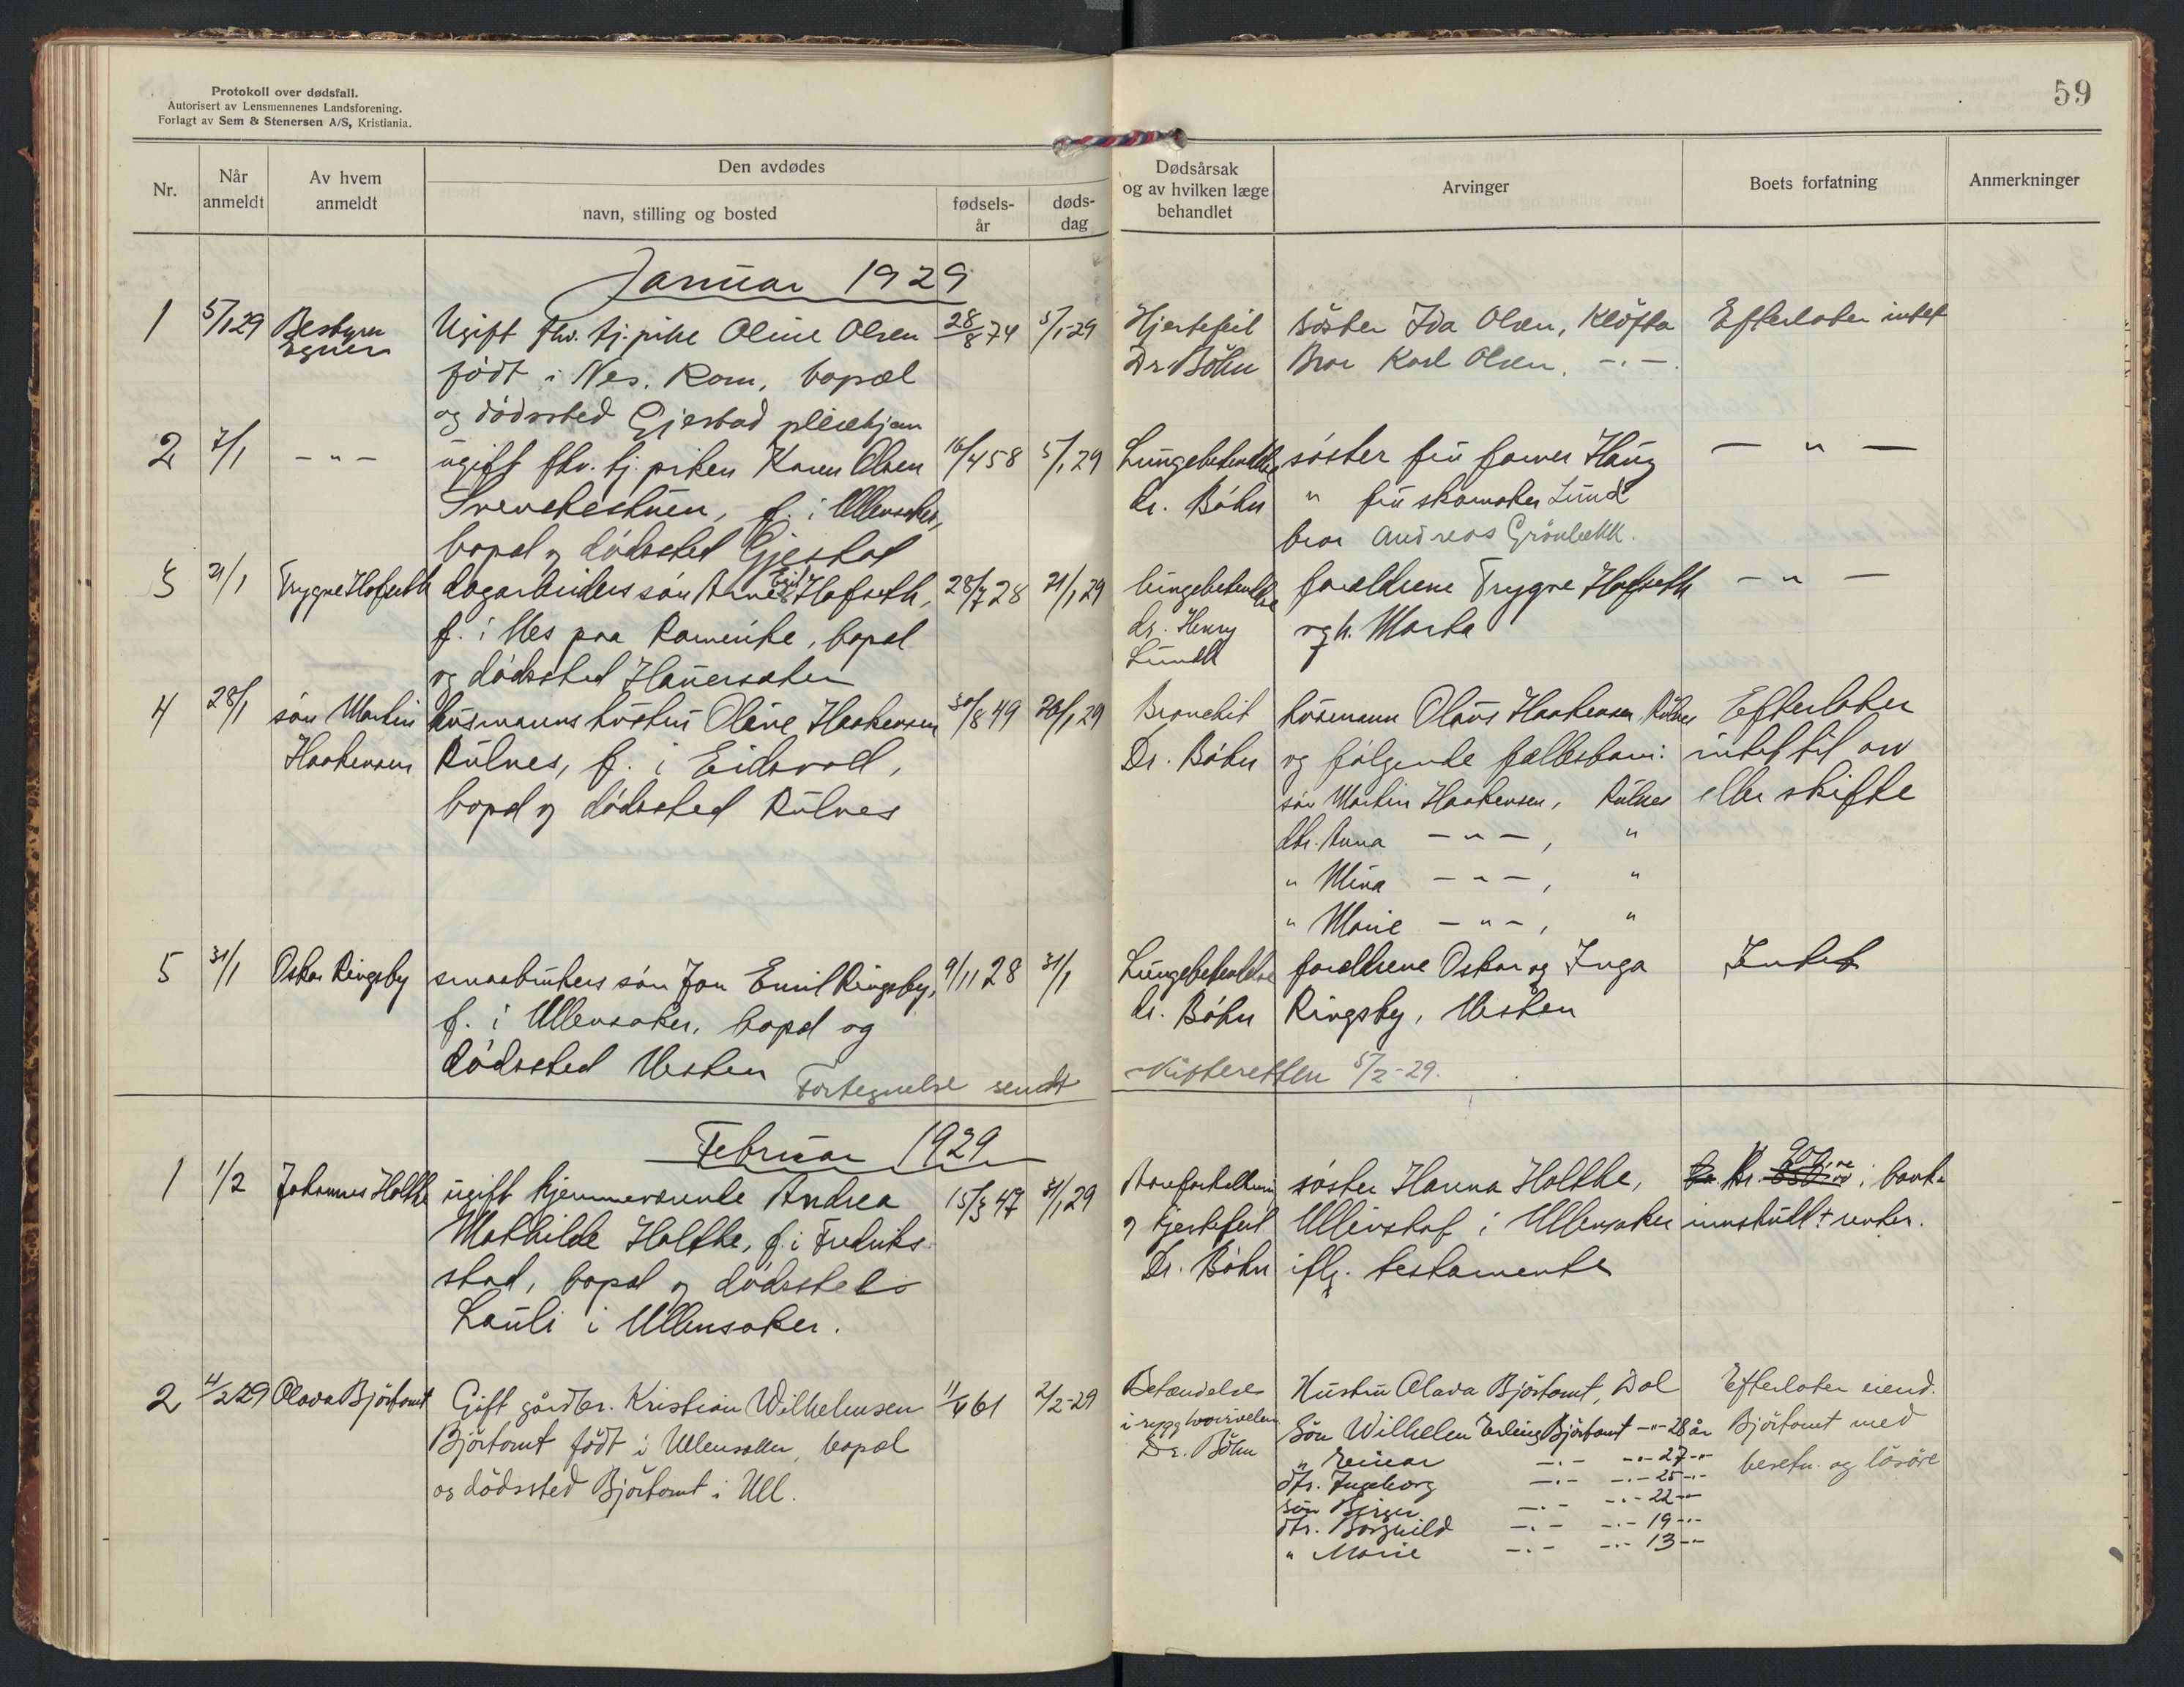 Protokoll over dødsfall.
Autorisert av Lensmennenes Landsforening.
Forlagt av Sem & Stenersen A/S, Kristiania.
59
Nr.
Når anmeldt
Av hvem anmeldt
Den avdødes
navn, stilling og bosted
fødsels-år
døds-dag
Dødsårsak og av hvilken læge behandlet
Arvinger
Boets forfatning
Anmerkninger
Januar 1929
1 5/1 29 Bestyrer Egner
Ugift fhv. tj.pike Oline Olsen 28/8 74 5/1-29
født i Nes. Rom, bopæl
og dödssted Gjestad pleiehjem
Hjertefeil
Dr Böhn
Söster Ida Olsen, Klöfta
Bror Karl Olsen, -.-
Efterlater intet
2 7/1 - " -
ugift fhv. tj. piken Karen Olsen 16/4 58 5/1 29
f. i Ullensaker,
bopæl og dödssted Gjestad
Lungebetendelse
dr. Böhn
söster fru farver Haug
" fru skomaker Lund
bror Andreas Grönbekk.
- " -
3 21/1 Trygve Hofseth
dagarbeiders sön Arne Hofseth, 28/7 28 21/1 29
f. i Nes paa Romerike, bopæl
og dödssted Hauersæter
lungebetendelse
dr. Henry
Lundh
forældrene Trygve Hofseth
og h. Marta
- " -
4 28/1 sön Martin Haakensen
husmanns hustru Oline Haakensen 30/8 49 28/1 29
Rulnes, f. i Eidsvoll,
bopæl og dödssted Rulnes
Bronchit
Dr. Böhn
husmann Olaus Haakensen, Rulnes
og fölgende fællesbarn:
sön Martin Haakensen, Rulnes
dtr. Anna - " -, "
" Mina - " -, "
" Marie - " -, "
Efterlater
intet til arv
eller skifte
5 31/1 Oskar Ringsby
smaabrukers sön Jon Emil Ringsby, 9/11 28 31/1
f. i Ullensaker, bopæl og
dödssted Vesten
Lungebetendelse
dr. Böhn
forældrene Oskar og Inga
Ringsby, Vesten
Intet
Fortegnelse sendt skifteretten 5/2-29.
Februar 1929
1 1/2 Johannes Holthe
ugift hjemmeværende Andrea 15/3 47 31/1 29
Mathilde Holthe, f. i Fredriks-
stad, bopæl og dödssted
Lauli i Ullensaker.
Aareforkalkning
og hjertefeil
Dr. Böhn
söster Hanna Holthe,
i Ullensaker
iflg. testamente
i bank
innskudt + renter.
2 4/2 29 Olava Björtomt
Gift gårdbr. Kristian Wilhelmsen 11/4 61 2/2-29
Björtomt födt i Ullensaker, bopæl
og dödssted Björtomt i Ull.
Betændelse
i rygghvirvelen
Dr. Böhn
Hustru Olava Björtomt, Dal
Sön Wilhelm Erling Björtomt -"- 28 år
" Einar -.- -.- 27 -"-
dtr. Ingeborg -.- -.- 25 -"-
sön Birger -.- -.- 22 -"-
dtr. Borghild -.- -.- 19 -"-
" Marie -.- -.- 13 -"-
Efterlater eiend.
Björtomt med
besetn. og lösöre